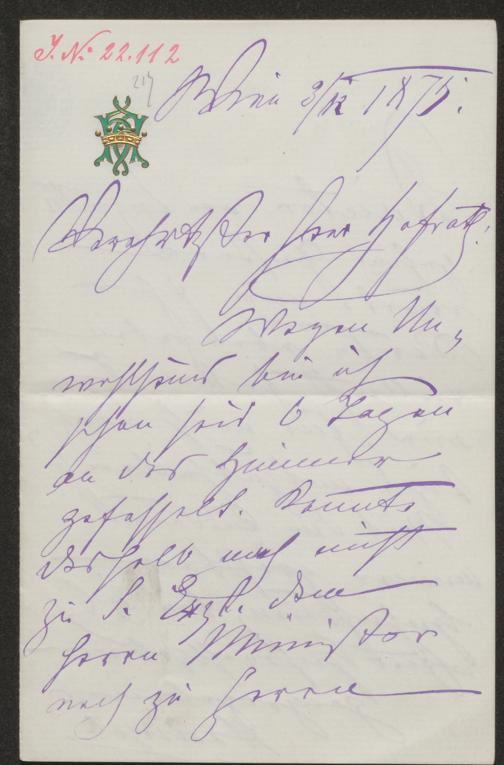 J. N. 22.112
219
Wien 3/12 1875.
Verehrtester Herr Hofrath!
Wegen Un-
wohlseins bin ich
schon seid 6 Tagen
an das Zimmer
gefesselt. Konnte
deshalb noch nicht
zu S. Exzl. dem
Herrn Minister
noch zu Herrn